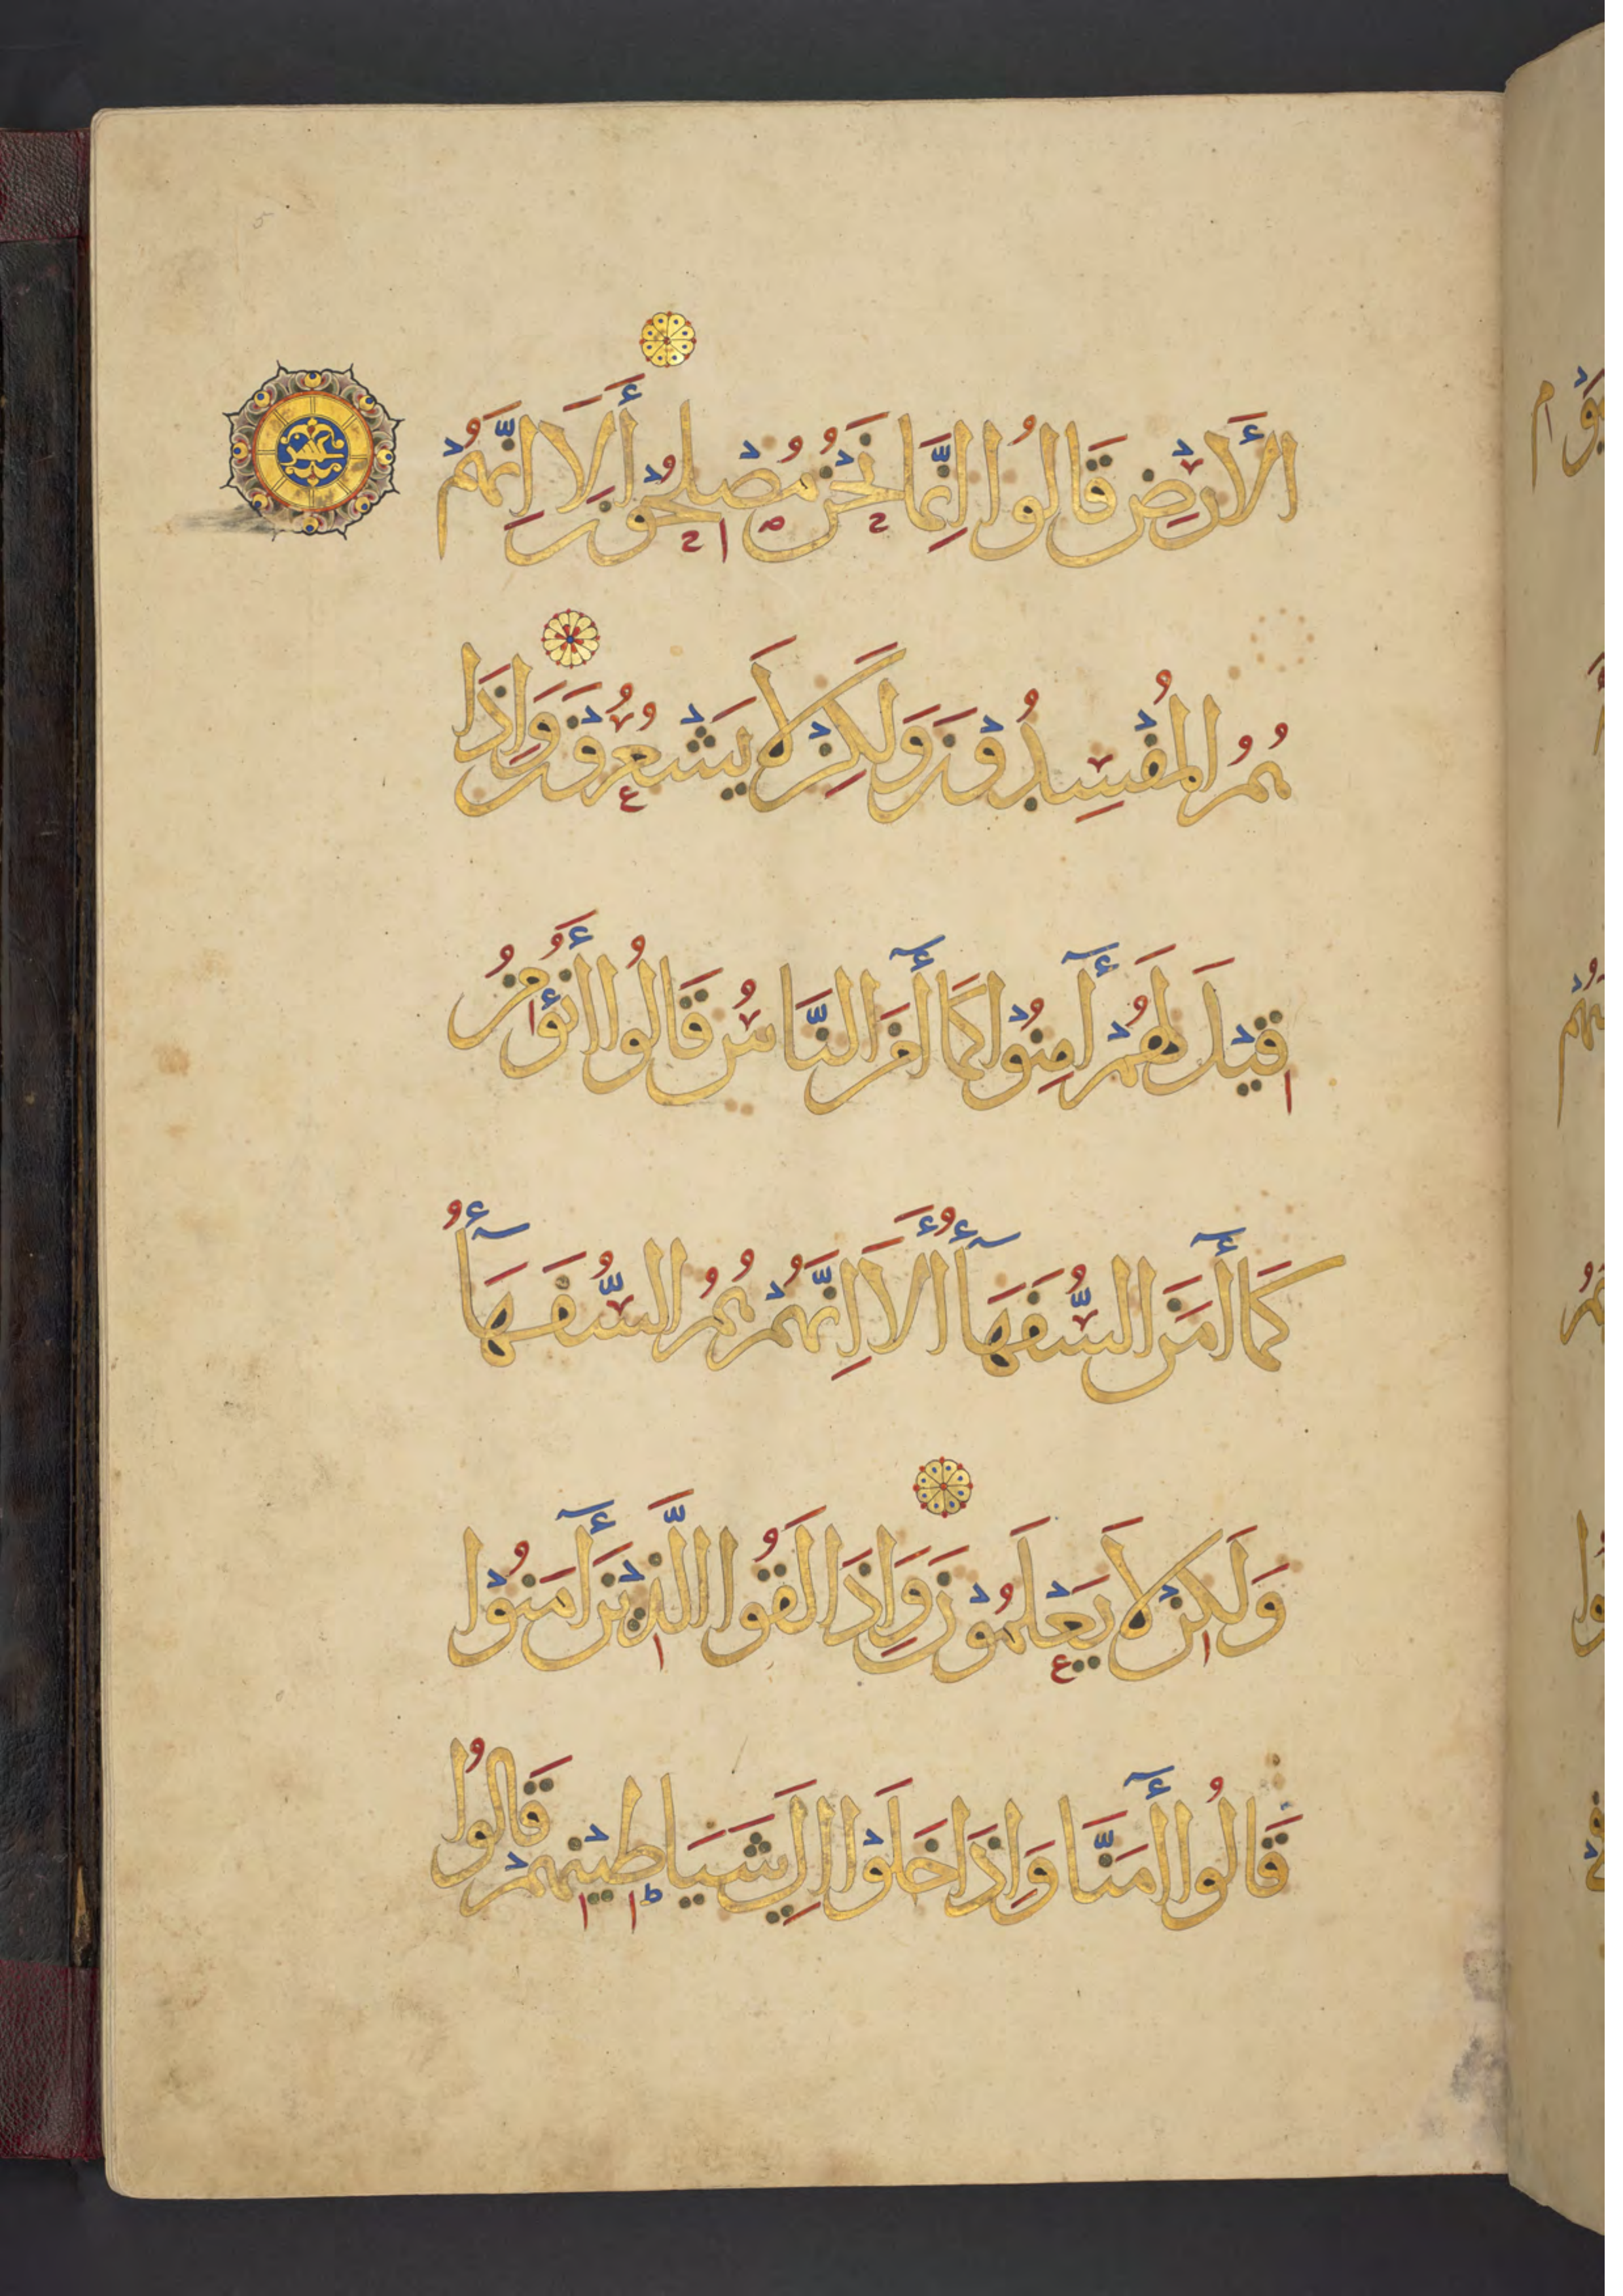 الْأَرْضِ قَالُوا إِنَّمَا نَحْنُ مُصْلِحُوْنَ أَلَا إِنَّهُمْ
عشر
هُمُ الْمُفْسِدُوْنَ وَلَكِنْ لَا يَشْعُرُوْنَ وَإِذَا
قِيْلَ لَهُمْ أٓمِنُوْا كَمَا أٓمَنَ النَّاسُ قَالُوا أَنُؤْمِنُ
كَمَا أٓمَنَ السُّفَهَآءُ أَلَا إِنَّهُمْ هُمُ السُّفَهَآءُ
وَلَكِنْ لَا يَعْلَمُوْنَ وَإِذَا لَقُوا الَّذِيْنَ أٓمَنُوْا
قَالُوا أٓمَنَّا وَإِذَا خَلَوْا إِلَى شَيَاطِيْنِهِمْ قَالُوا